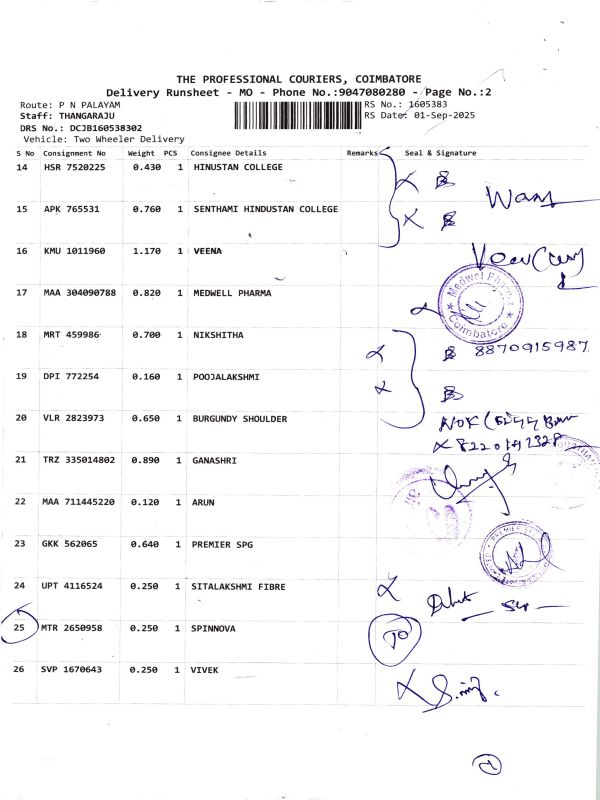 THE PROFESSIONAL COURIERS, COIMBATORE
Delivery Runsheet - MO - Phone No.:9047080280 - Page No.:2
Route: P N PALAYAM
RS No.: 1605383
Staff: THANGARAJU
RS Date: 01-Sep-2025
DRS No.: DCJB160538302
Vehicle: Two Wheeler Delivery
S No Consignment No Weight PCS Consignee Details Remarks Seal & Signature
14 HSR 7520225 0.430 1 HINUSTAN COLLEGE
15 APK 765531 0.760 1 SENTHAMI HINDUSTAN COLLEGE
16 KMU 1011960 1.170 1 VEENA
17 MAA 304090788 0.820 1 MEDWELL PHARMA
Coimbatore
18 MRT 459986 0.700 1 NIKSHITHA
8870915987
19 DPI 772254 0.160 1 POOJALAKSHMI
20 VLR 2823973 0.650 1 BURGUNDY SHOULDER
21 TRZ 335014802 0.890 1 GANASHRI
22 MAA 711445220 0.120 1 ARUN
23 GKK 562065 0.640 1 PREMIER SPG
24 UPT 4116524 0.250 1 SITALAKSHMI FIBRE
25 MTR 2650958 0.250 1 SPINNOVA
26 SVP 1670643 0.250 1 VIVEK